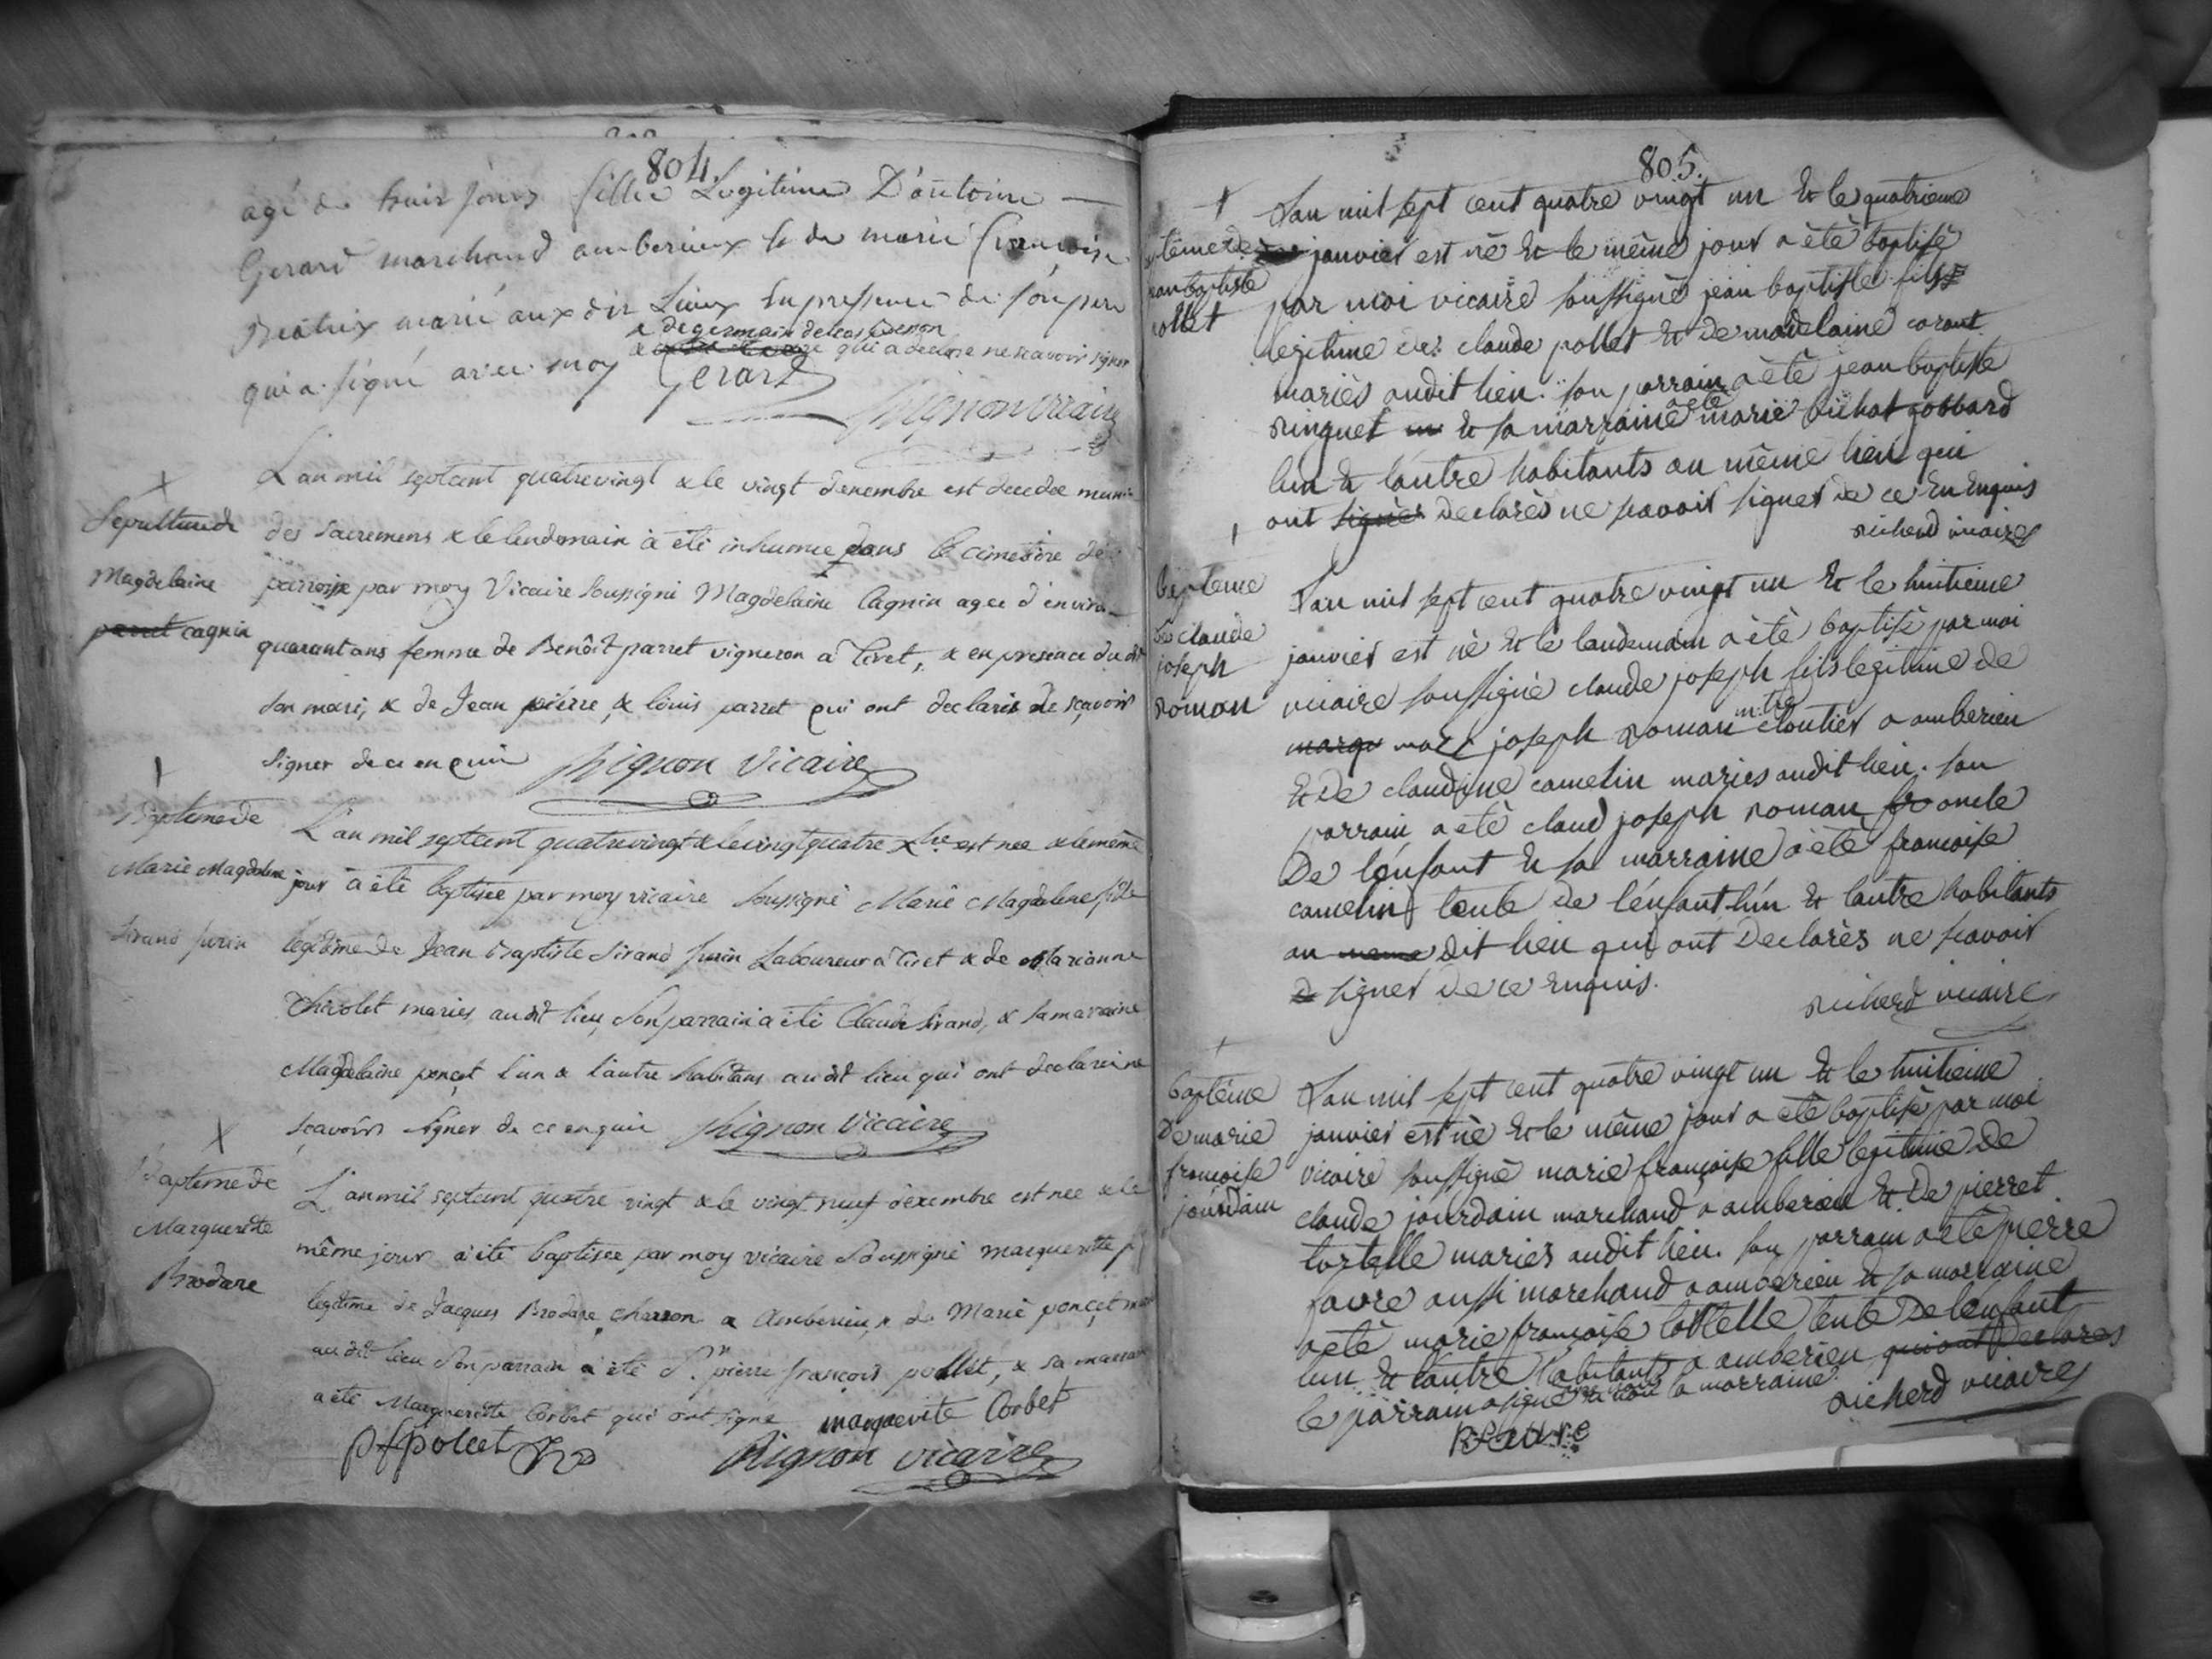 804.
agé de huit jours fille Legitime D'antoine
Gerard marchand amberieux & de marie françoise
Béatrix marié aux dit Lieux En presence de son pere
& de germain delcas
qui a signé avec moy & qui a declaré ne scavoir signer
Gerard
Rignon vicaire
Sepulture de
Magdelaine
parret cagnin
L'an mil septcent quatrevingt & le vingt decembre est decedée munie
des sacremens & le lendemain à été inhumée dans le cimetiere de
parroisse par moy Vicaire soussigné Magdelaine Cagnin agée d'environ
quarant ans femme de Benôit parret vigneron a Tiret, & en presence dudit
son mari, & de Jean pierre, & louis parret qui ont declarés ne sçavoir
signer de ce enquis Rignon Vicaire
Baptême de
Marie Magdelene
Sirand purin
L'an mil septcent quatrevingt & le vingt quatre Xbre est née & le même
jour à été baptisée par moy vicaire soussigné Marie Magdelene fille
legitime de Jean Baptiste Sirand purin Laboureur à Tiret & de Marianne
Chivolet mariés audit lieu, Son parrain a été Claude Sirand, & sa maraine
Magdelaine ponçet l'un & l'autre habitans audit lieu qui ont declaré ne
sçavoir signer de ce enquis Rignon Vicaire
Baptême de
Margueritte
Brodare
L'an mil septcent quatre vingt & le vingt neuf decembre est née & le
même jour à été baptisée par moy vicaire soussigné margueritte
legitime de Jacques Brodare charron a Amberieu, & de Marie ponçet
audit lieu Son parrain a été Sr. pierre françois pollet, & sa marraine
a été Marguerette Corbet qui ont signé marguerite Corbet
pfpollet Rignon vicaire
805.
jean baptiste
pollet
L'an mil sept cent quatre vingt un Et le quatrieme
janvier est né Et le même jour a été baptisé
par moi vicaire soussigné jean baptiste fils
legitime de claude pollet Et de madelaine carant
mariés audit lieu. son parrain a été jean baptiste
a été
ringuet Et sa marraine marie bichat gobbard
lun Et lautre habitants au même lieu qui
ont signés declarés ne savoir signer de ce En Enquis
richerd vicaire
baptême
de claude
joseph
roman
L'an mil sept cent quatre vingt un Et le huitieme
janvier est né Et le landemain a été baptisé par moi
vicaire soussigné claude joseph fils legitime de
m.tre
joseph roman cloutier a amberieu
Et De claudine camelin maries audit lieu. son
parrain a été claud joseph roman oncle
De l'enfant Et sa marraine a été françoise
camelin tente de l'enfant lún Et lautre habitants
au meme dit lieu qui ont Declarés ne scavoir
signer De ce Enquis.
richerd vicaire
baptême
De marie
françoise
jourdain
L'an mil sept cent quatre vingt un Et le huitieme
janvier est né Et le même jour a été baptisé par moi
vicaire soussigné marie françoise fille legitime De
claude jourdain marchand a amberieu Et De pierret
tortelle mariés audit lieu. son parrain a été pierre
favre aussi marchand a amberieu Et sa marraine
a été marie françoise tortelle tente De l'enfant
lun Et lautre habitants a amberieu qui ont Declares
le parrain a signé la marraine.
richerd vicaire